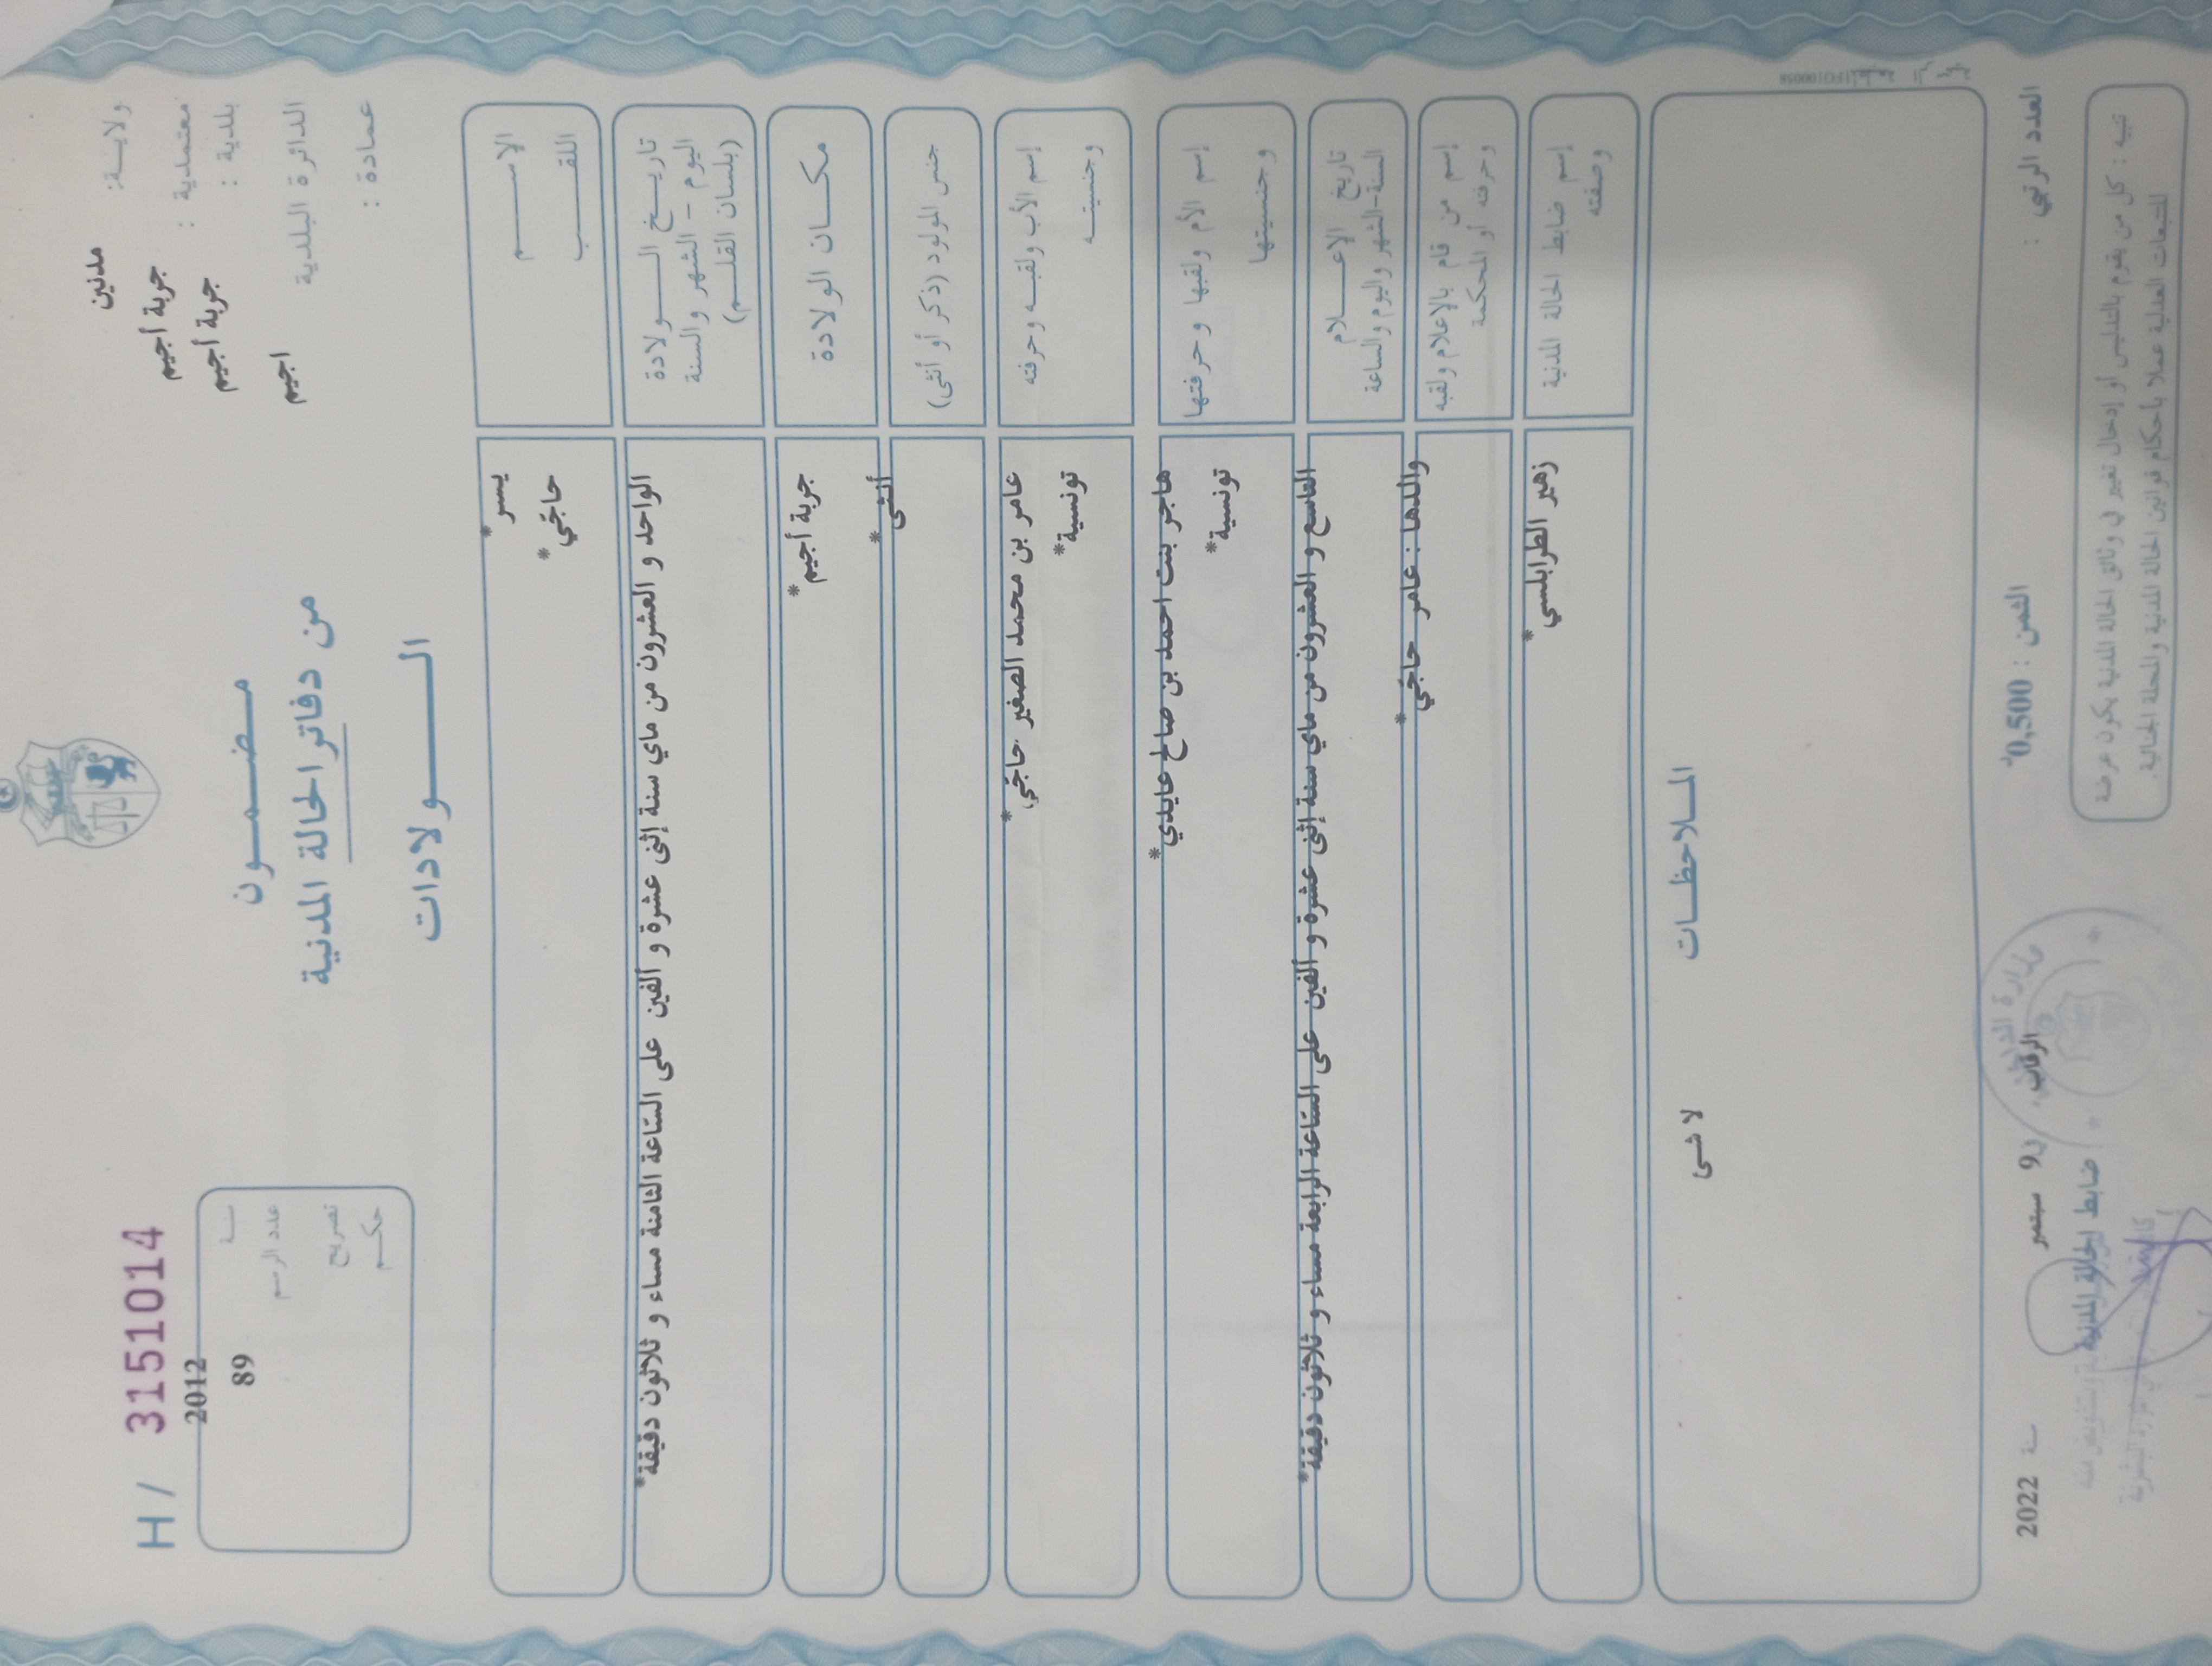 ولايـــة: مدنين
معتمدية : جربة أجيم
بلدية : جربة أجيم
الدائرة البلدية اجيم
عمادة :
مـضـمــون
من دفاتر الحالة المدنية
الـــولادات
H / 3151014
سنــة 2012
عدد الرسم 89
تصريح
حكـم
الاســـم يسر*
اللقـــب حاجي*
تاريـــخ الـــولادة
اليوم - الشهر والسنة
(بلسان القلـــم)
الواحد و العشرون من ماي سنة إثنى عشرة و ألفين على السّاعة الثامنة مساء و ثلاثون دقيقة*
مكـــان الولادة جربة أجيم*
جنس المولود (ذكر أو أنثى) أنثى*
إسم الأب ولقبـــه وحرفته عامر بن محمد الصغير حاجي*
وجنسيتـــه تونسية*
إسم الأم ولقبها وحرفتها هاجر بنت احمد بن صالح عايدي*
وجنسيتها تونسية*
تاريخ الإعـــلام
السنة-الشهر واليوم والساعة
التاسع و العشرون من ماي سنة إثنى عشرة و ألفين على السّاعة الرابعة مساء و ثلاثون دقيقة*
إسم من قام بالإعلام ولقبه
وحرفته أو المحكمة
والدها : عامر حاجي*
إسم ضابط الحالة المدنية
وصفته
زهير الطرابلسي*
المـلاحظـــات
لا شى
العدد الرتبي :
الثمن : 0,500د
الرقاب، ب 9 سبتمبر سنة 2022
ضابط الحالة المدنية
تنبيه : كل من يقوم بالتدليس أو إدخال تغيير في وثائق الحالة المدنية يكون عرضة
للتتبعات العدلية عملا بأحكام قوانين الحالة المدنية والمجلة الجنائية.